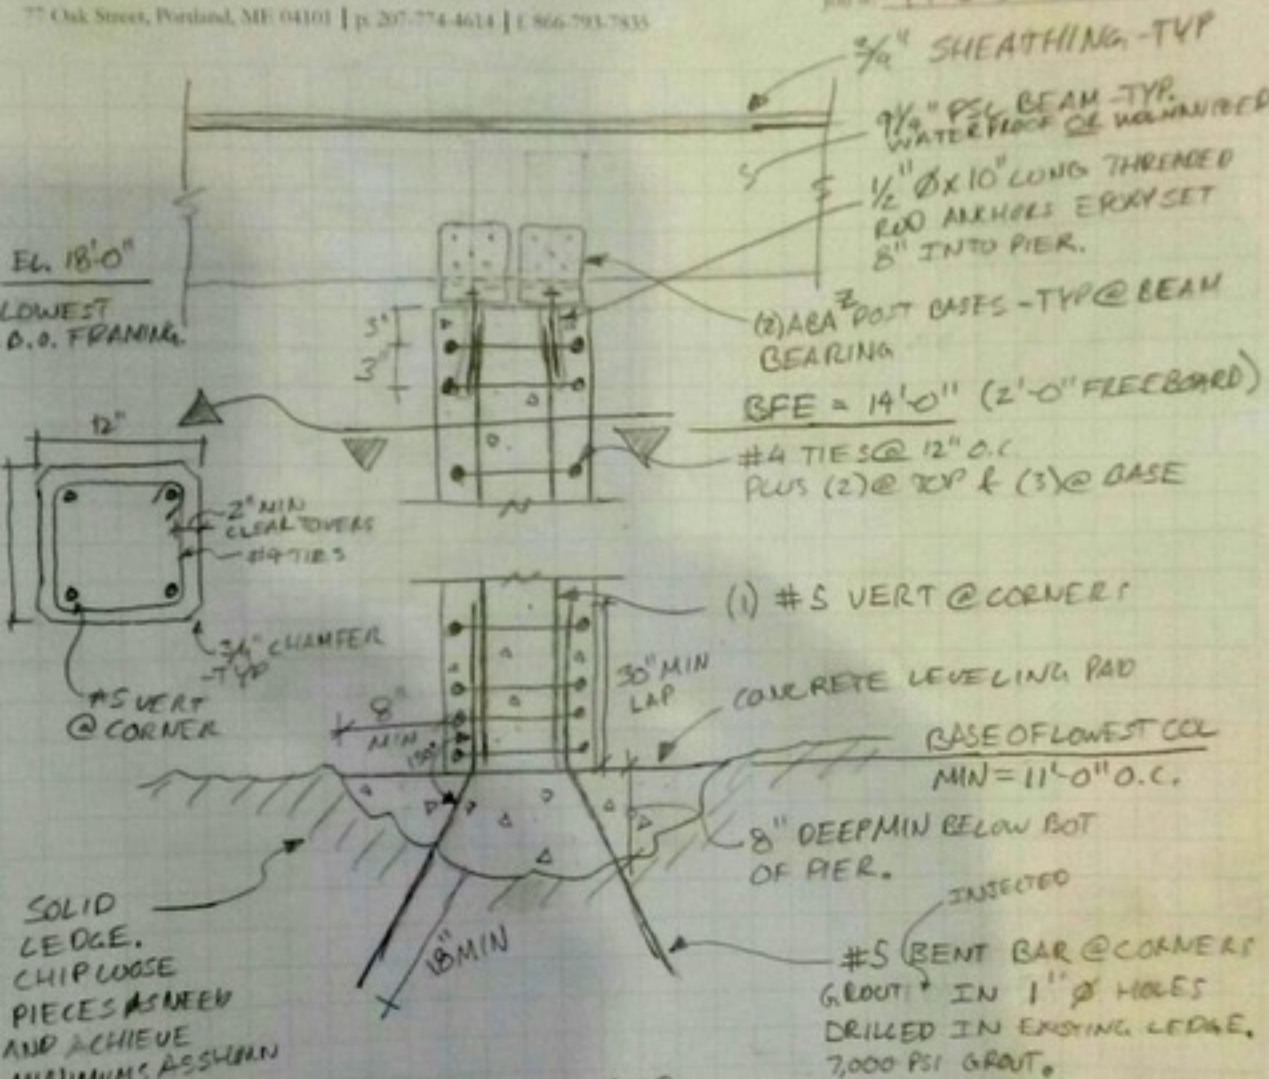 77 Oak Street, Portland, ME 04101 | p. 207-774-4614 | f. 866-793-7835
3/4" SHEATHING-TYP
9 1/4" PSL BEAM-TYP.
WATERPROOF OR WOLMANIZED
1/2" Ø X 10" LONG THREADED
ROD ANCHORS EPOXY SET
8" INTO PIER.
EL. 18'-0"
LOWEST
B.O. FRAMING.
(2) ABA Z POST BASES-TYP @ BEAM
BEARING
3"
3"
BFE = 14'-0" (2'-0" FREEBOARD)
#4 TIES @ 12" O.C.
PLUS (2) @ TOP & (3) @ BASE
12"
2" MIN
CLEAR COVERS
#4 TIES
3/4" CHAMFER
-TYP
#5 VERT
@ CORNER
(1) #5 VERT @ CORNERS
30" MIN
LAP
8"
MIN
CONCRETE LEVELING PAD
BASE OF LOWEST COL
MIN = 11'-0" O.C.
8" DEEP MIN BELOW BOT
OF PIER.
18" MIN
SOLID
LEDGE.
CHIP LOOSE
PIECES AS NEED
AND ACHIEVE
MINIMUMS AS SHOWN
INJECTED
#5 BENT BAR @ CORNERS
GROUT IN 1" Ø HOLES
DRILLED IN EXISTING LEDGE.
7,000 PSI GROUT.